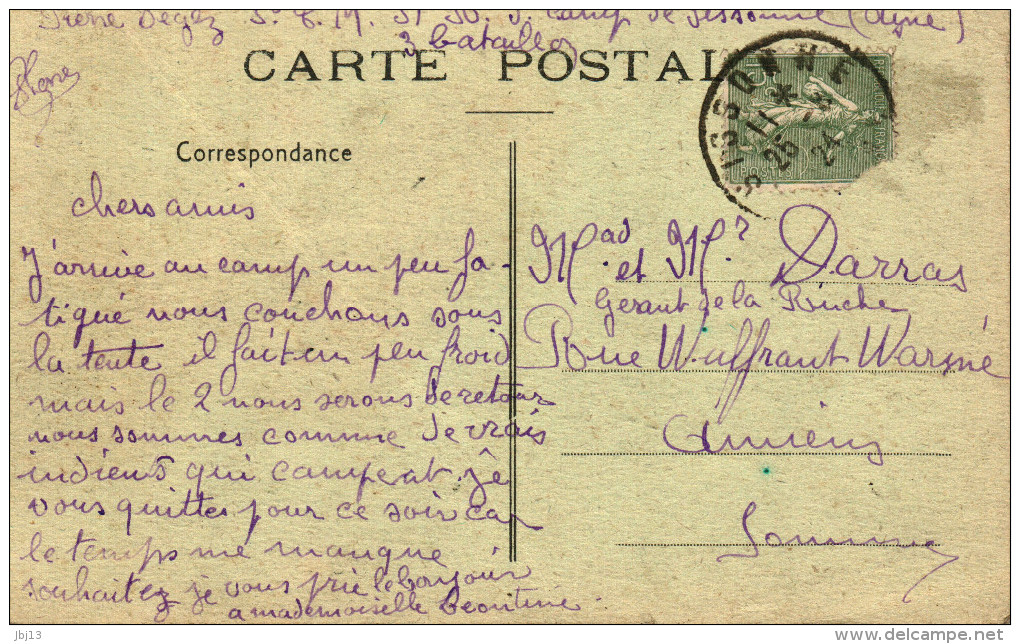 3 bataillon
CARTE POSTAL
SISSONNE
11 * 
25 24
POSTES
Correspondance
chers amis
J'arrive au camp un peu fa-
tiqué nous couchons sous
la tente il fait un peu froid
mais le 2 nous serons de retour
nous sommes comme de vrais
indiens qui camperat. je
vous quittes pour ce soir car
le temps me manque
souhaitez je vous prie le bonjour
a mademoiselle Leontine.
Mad et Mr Darras
Gerant de la Ruche
Rue Wulffrant Warmé
Amiens
Somme
jbj13
delcampe.net